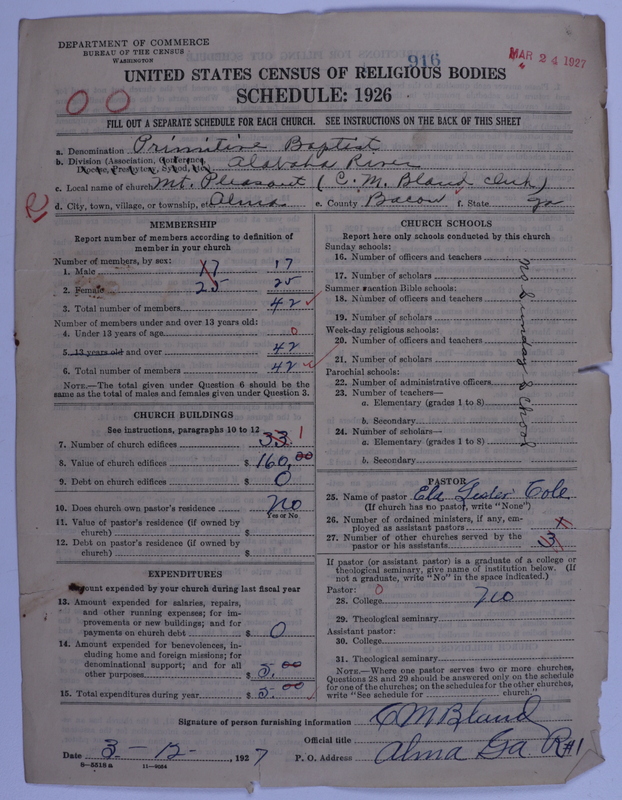 DEPARTMENT OF COMMERCE
BUREAU OF THE CENSUS
WASHINGTON
916
MAR 24 1927
UNITED STATES CENSUS OF RELIGIOUS BODIES
SCHEDULE: 1926
00
FILL OUT A SEPARATE SCHEDULE FOR EACH CHURCH. SEE INSTRUCTIONS ON THE BACK OF THIS SHEET
a. Denomination Primitive Baptist
b. Division (Association, Conference, Diocese, Presbytery, Synod, etc.) Alabaha River
c. Local name of church Mt. Pleasant (C. M. Bland Clerk)
R
d. City, town, village, or township, etc. Alma e. County Bacon f. State Ga
MEMBERSHIP
Report number of members according to definition of
member in your church
Number of members, by sex:
1. Male 17 17
2. Female 25 25
3. Total number of members 42
Number of members under and over 13 years old:
4. Under 13 years of age 0
5. 13 years old and over 42
6. Total number of members 42
NOTE.—The total given under Question 6 should be
same as the total of males and females given under Question 3.
CHURCH BUILDINGS
See instructions, paragraphs 10 to 12
7. Number of church edifices 33 1
8. Value of church edifices $ 160.00
9. Debt on church edifices $ 0
10. Does church own pastor's residence no
Yes or No
11. Value of pastor's residence (if owned by
church) $
12. Debt on pastor's residence (if owned by
church) $
EXPENDITURES
Amount expended by your church during last fiscal year
13. Amount expended for salaries, repairs,
and other running expenses; for im-
provements or new buildings; and for
payments on church debt $ 0
14. Amount expended for benevolences, in-
cluding home and foreign missions; for
denominational support; and for all
other purposes $ 5.00
15. Total expenditures during year $ 5.00
CHURCH SCHOOLS
Report here only schools conducted by this church
Sunday schools:
16. Number of officers and teachers
17. Number of scholars
Summer vacation Bible schools:
18. Number of officers and teachers
19. Number of scholars
Week-day religious schools:
20. Number of officers and teachers
21. Number of scholars
Parochial schools:
22. Number of administrative officers
23. Number of teachers—
a. Elementary (grades 1 to 8)
b. Secondary
24. Number of scholars—
a. Elementary (grades 1 to 8)
b. Secondary
No Sunday School
PASTOR
25. Name of pastor Eld Cole
(If church has no pastor, write "None")
26. Number of ordained ministers, if any, em-
ployed as assistant pastors x
27. Number of other churches served by the
pastor or his assistants 3
If pastor (or assistant pastor) is a graduate of a college or
theological seminary, give name of institution below. (If
not a graduate, write "No" in the space indicated.)
Pastor: 0
28. College no
29. Theological seminary
Assistant pastor:
30. College
31. Theological seminary
NOTE.—Where one pastor serves two or more churches,
Questions 28 and 29 should be answered only on the schedule
for one of the churches; on the schedules for the other churches,
write "See schedule for church."
Signature of person furnishing information C M Bland
Official title
Date 3 - 12 -, 1927 P. O. Address Alma Ga R#1
8-5518 a 11-9084